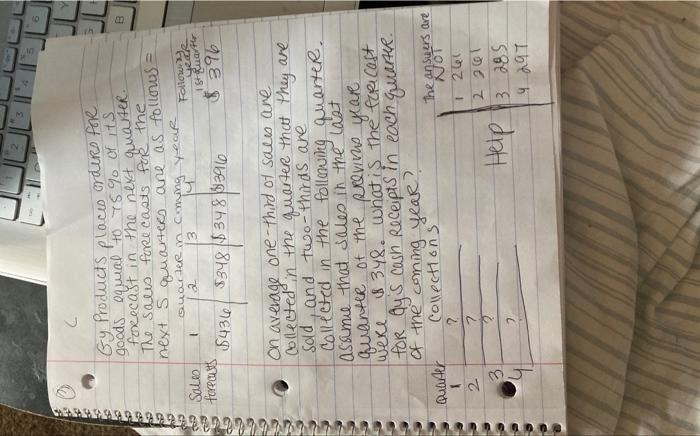 Gy Products places orders for
goods equal to 75% of its
forecast in the next quarter.
The sales forecasts for the
next 5 quarters are as follows =
quarter in coming year
Following year
1st quarter
Sales 1 2 3 4
forecasts $436 $348 $348 $396 $396
On average one-third of sales are
collected in the quarter that they are
sold, and two-thirds are
collected in the following quarter.
Assume that sales in the last
quarter of the previous year
were $348. What is the forecast
for Gy's cash receipts in each quarter
of the coming year?
quarter Collections
1 ?
2 ?
3 ?
4 ?
Help
The answers are
NOT
1 261
2 261
3 285
4 297